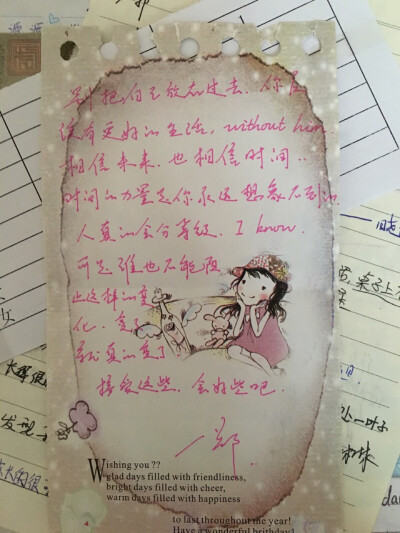 别把自己放在过去.你应
该有更好的生活, without him
相信未来.也相信时间..
时间的力量是你永远想象不到的
人真的会分等级. I know.
可是谁也不能阻
止这样的变
化.变了
就真的变了
接受这些.会好些吧.
郑.
Wishing you ??
glad days filled with friendliness,
bright days filled with cheer,
warm days filled with happiness
to last throughout the year!
Have a wonderful birthday!
发现
处一叶子